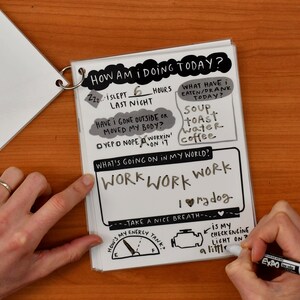 HOW AM I DOING TODAY?
ZZZ I SLEPT 6 HOURS
LAST NIGHT
WHAT HAVE I
EATEN/DRANK
TODAY?
soup
toast
water
coffee
HAVE I GONE OUTSIDE OR
MOVED MY BODY?
YEP NOPE WORKIN'
ON IT
WHAT'S GOING ON IN MY WORLD?
WORK WORK WORK
I ♥ my dog
TAKE A NICE BREATH
HOW'S MY ENERGY TODAY?
IS MY
CHECK ENGINE
LIGHT ON?
a little
EXPO